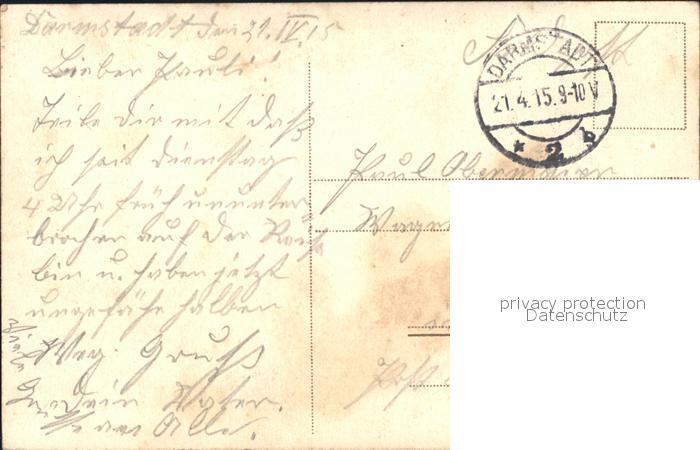 Darmstadt den 21.IV.15
Lieber Pauli!
Teile dir mit daß
ich seit Dienstag
4 Uhr früh ununter
brochen auf der Reise
bin u. haben jetzt
ungefähr halben
Weg. Gruß
Dein Vater.
an Alle.
Viele
DARMSTADT
21.4.15.9-10V
* 2 b
Paul Obermeier
privacy protection
Datenschutz
Post